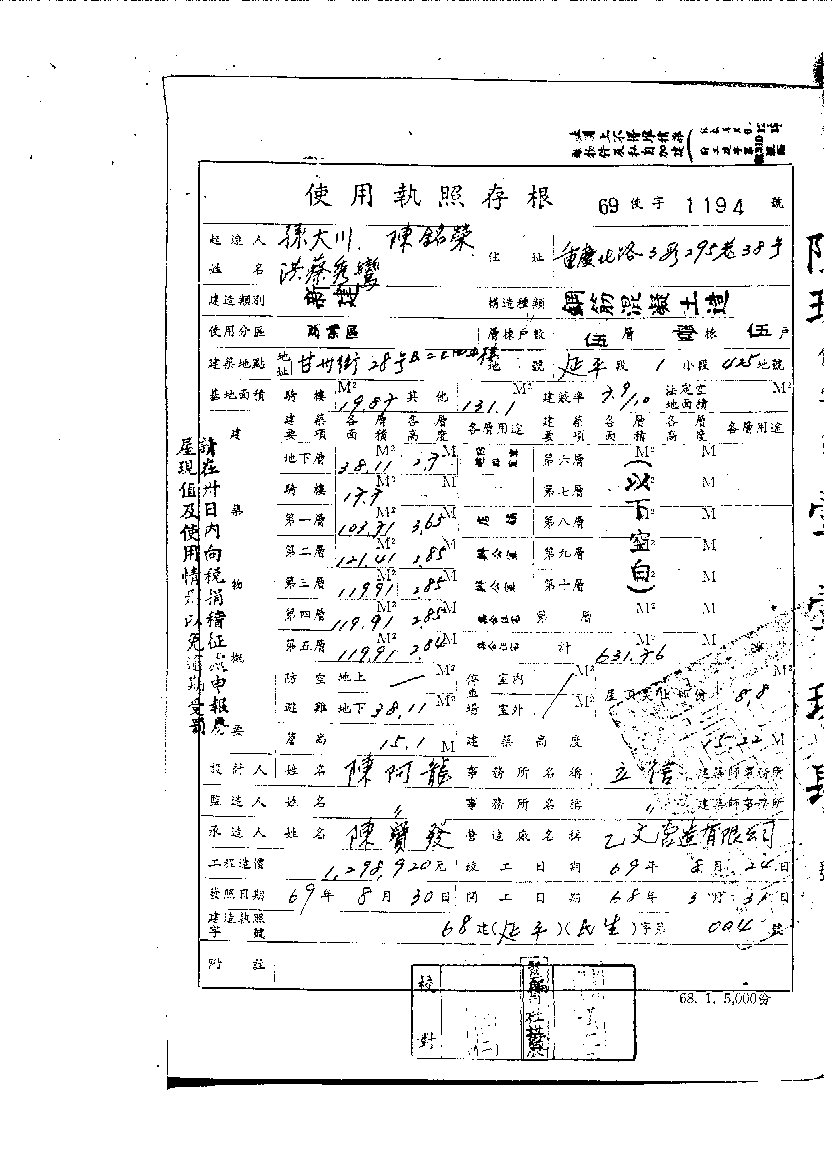 使用執照存根 69使字1194號
起造人姓名 孫大川 陳銘榮 洪蔡秀鑾 住址 重慶北路3段295巷38號
建造類別 新建 構造種類 鋼筋混凝土造
使用分區 商業區 層棟戶數 伍層 壹棟 伍戶
建築地點 地址 甘州街28號 地號 延平段1小段425地號
基地面積 騎樓 19.87 M² 其他 131.1 M² 建蔽率 法定空地面積 M²
建築要項 各層面積 各層高度 各層用途 建築要項 各層面積 各層高度 各層用途
建築物概要
地下層 38.11 M² 2.7 M 第六層 M² M
騎樓 17.7 第七層 M² M
第一層 103.71 M² 3.65 M 店舖 第八層 M² M
第二層 121.41 M² 2.85 M 第九層 M² M
第三層 119.91 M² 2.85 M 第十層 M² M
第四層 119.91 M² 2.85 M 第 層 M² M
第五層 119.91 M² 2.84 M 計 631.76 M² M
(以下空白)
防空避難 地上 M² 停車場 室內 M²
地下 38.11 M² 室外 M² 8.8
簷高 15.1 M 建築高度 15.22 M
設計人 姓名 陳阿龍 事務所名稱 立信 建築師事務所
監造人 姓名 〃 事務所名稱 〃 建築師事務所
承造人 姓名 陳寶發 營造廠名稱 乙文營造有限公司
工程造價 1,298,920元 竣工日期 69年8月24日
發照日期 69年8月30日 開工日期 68年3月31日
建造執照字號 68建(延平)(民生)字第004號
附註
68. 1. 5,000份
校對
請在卅日內向稅捐稽征處申報房
屋現值及使用情形以免逾期受罰